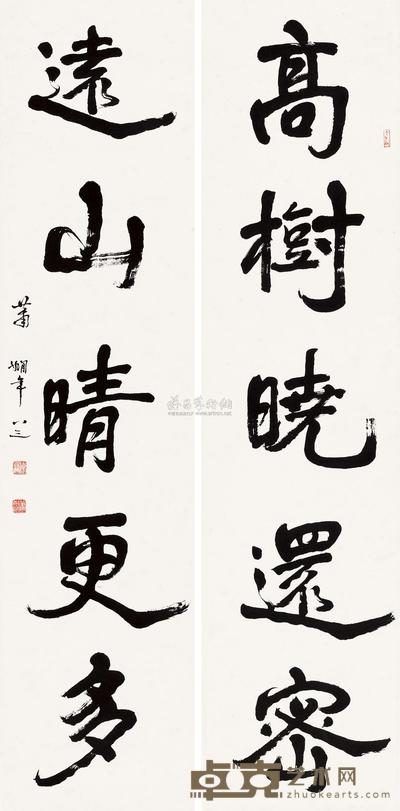 高樹曉還密
遠山晴更多
蕭嫻年八三
卓克艺术网
www.zhuokearts.com